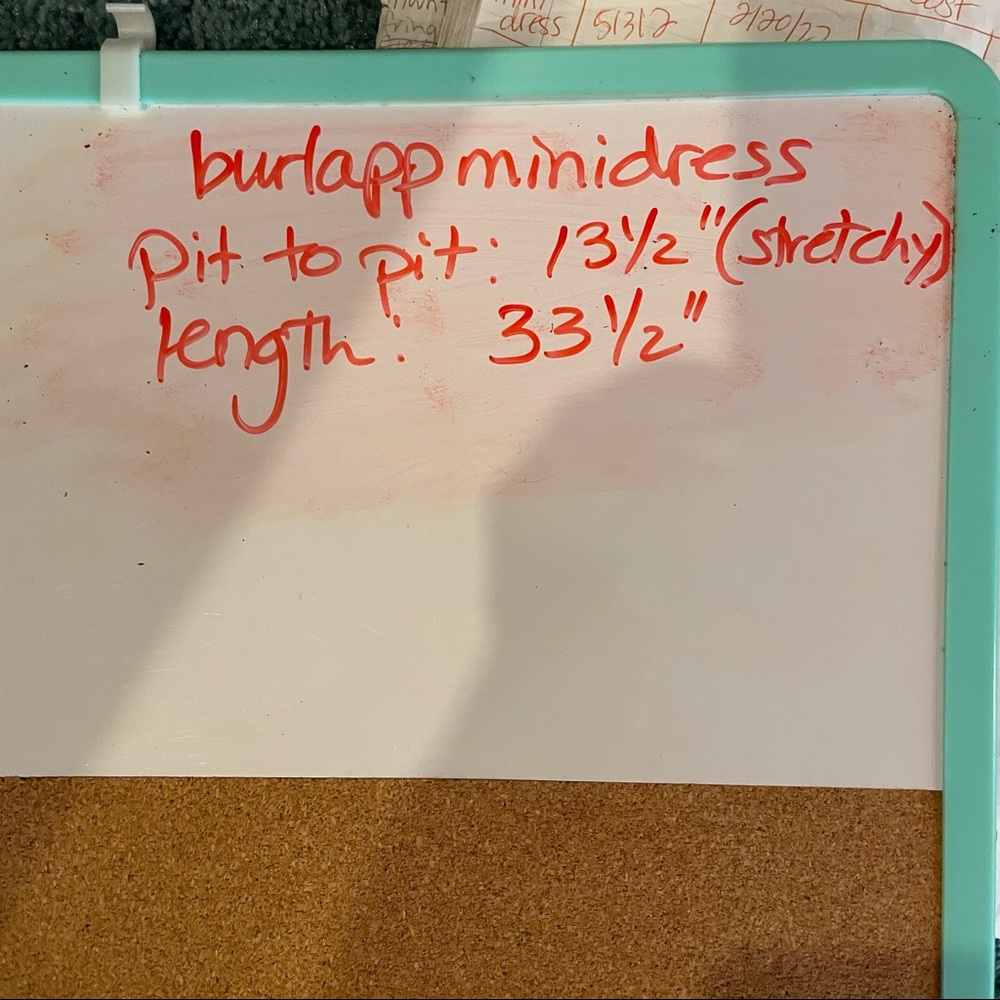 mini cost
dress 51312 2/20/22
burlapp minidress
pit to pit: 13 1/2" (stretchy)
length: 33 1/2"